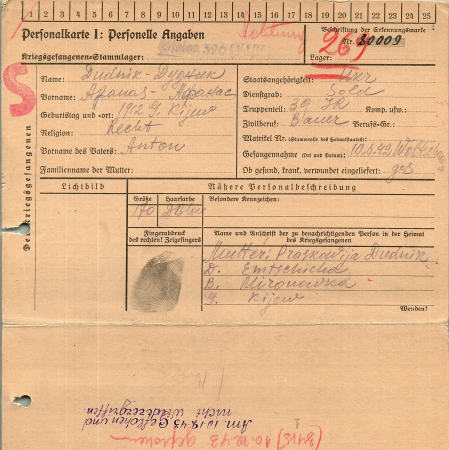 1 2 3 4 5 6 7 8 9 10 11 12 13 14 15 16 17 18 19 20 21 22 23 24 25
Personalkarte I: Personelle Angaben
Beschriftung der Erkennungsmarke
Nr. 80009
Kriegsgefangenen-Stammlager:
Lager:
Des Kriegsgefangenen
Name: Dudnik - Дудник
Vorname: Afanas - Афанас
Geburtstag und -ort: 1912 G. Kijew
Religion: Recht
Vorname des Vaters: Anton
Familienname der Mutter:
Staatsangehörigkeit: Ukr
Dienstgrad: Sold
Truppenteil: 39 JR Komp. usw.:
Zivilberuf: Bauer Berufs-Gr.:
Matrikel Nr. (Stammrolle des Heimatstaates):
Gefangennahme (Ort und Datum):
Ob gesund, krank, verwundet eingeliefert: ges
Lichtbild
Nähere Personalbeschreibung
Größe Haarfarbe Besondere Kennzeichen:
170
Fingerabdruck
des rechten! Zeigefingers
Name und Anschrift der zu benachrichtigenden Person in der Heimat
des Kriegsgefangenen
Mutter: Praskowija Dudnik
D. Emtschicha
B. Mironowka
G. Kijew
Wenden!
Am 10.12.43 Geflohen und
nicht Wiederergriffen
10.12.43 geflohen